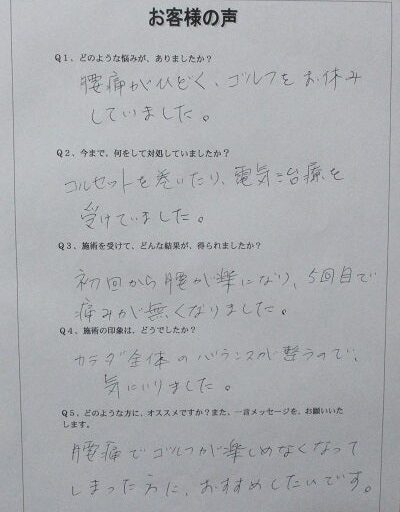 お客様の声
Q1、どのような悩みが、ありましたか？
腰痛がひどく、ゴルフをお休み
していました。
Q2、今まで、何をして対処していましたか？
コルセットを巻いたり、電気治療を
受けていました。
Q3、施術を受けて、どんな結果が、得られましたか？
初回から腰が楽になり、5回目で
痛みが無くなりました。
Q4、施術の印象は、どうでしたか？
カラダ全体のバランスが整うので、
気にいりました。
Q5、どのような方に、オススメですか？また、一言メッセージを、お願いいた
します。
腰痛でゴルフが楽しめなくなって
しまった方に、おすすめしたいです。